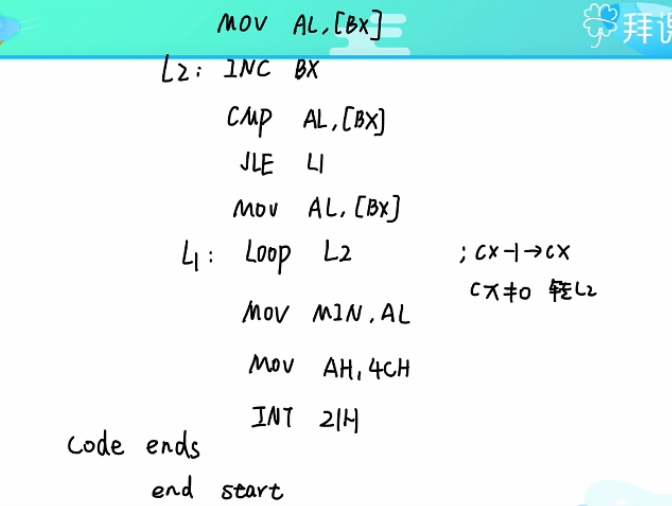 MOV AL,[BX]
拜
L2: INC BX
CMP AL,[BX]
JLE L1
MOV AL,[BX]
L1: Loop L2 ; CX-1→CX
CX≠0 转L2
MOV MIN,AL
MOV AH,4CH
INT 21H
Code ends
end start